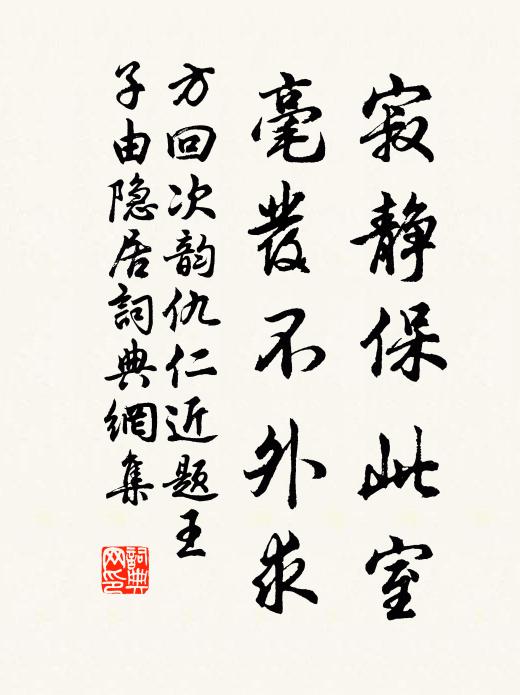 寂静保此室
毫發不外求
方回次韵仇仁近题王
子由隐居詞典網集
詞典网印